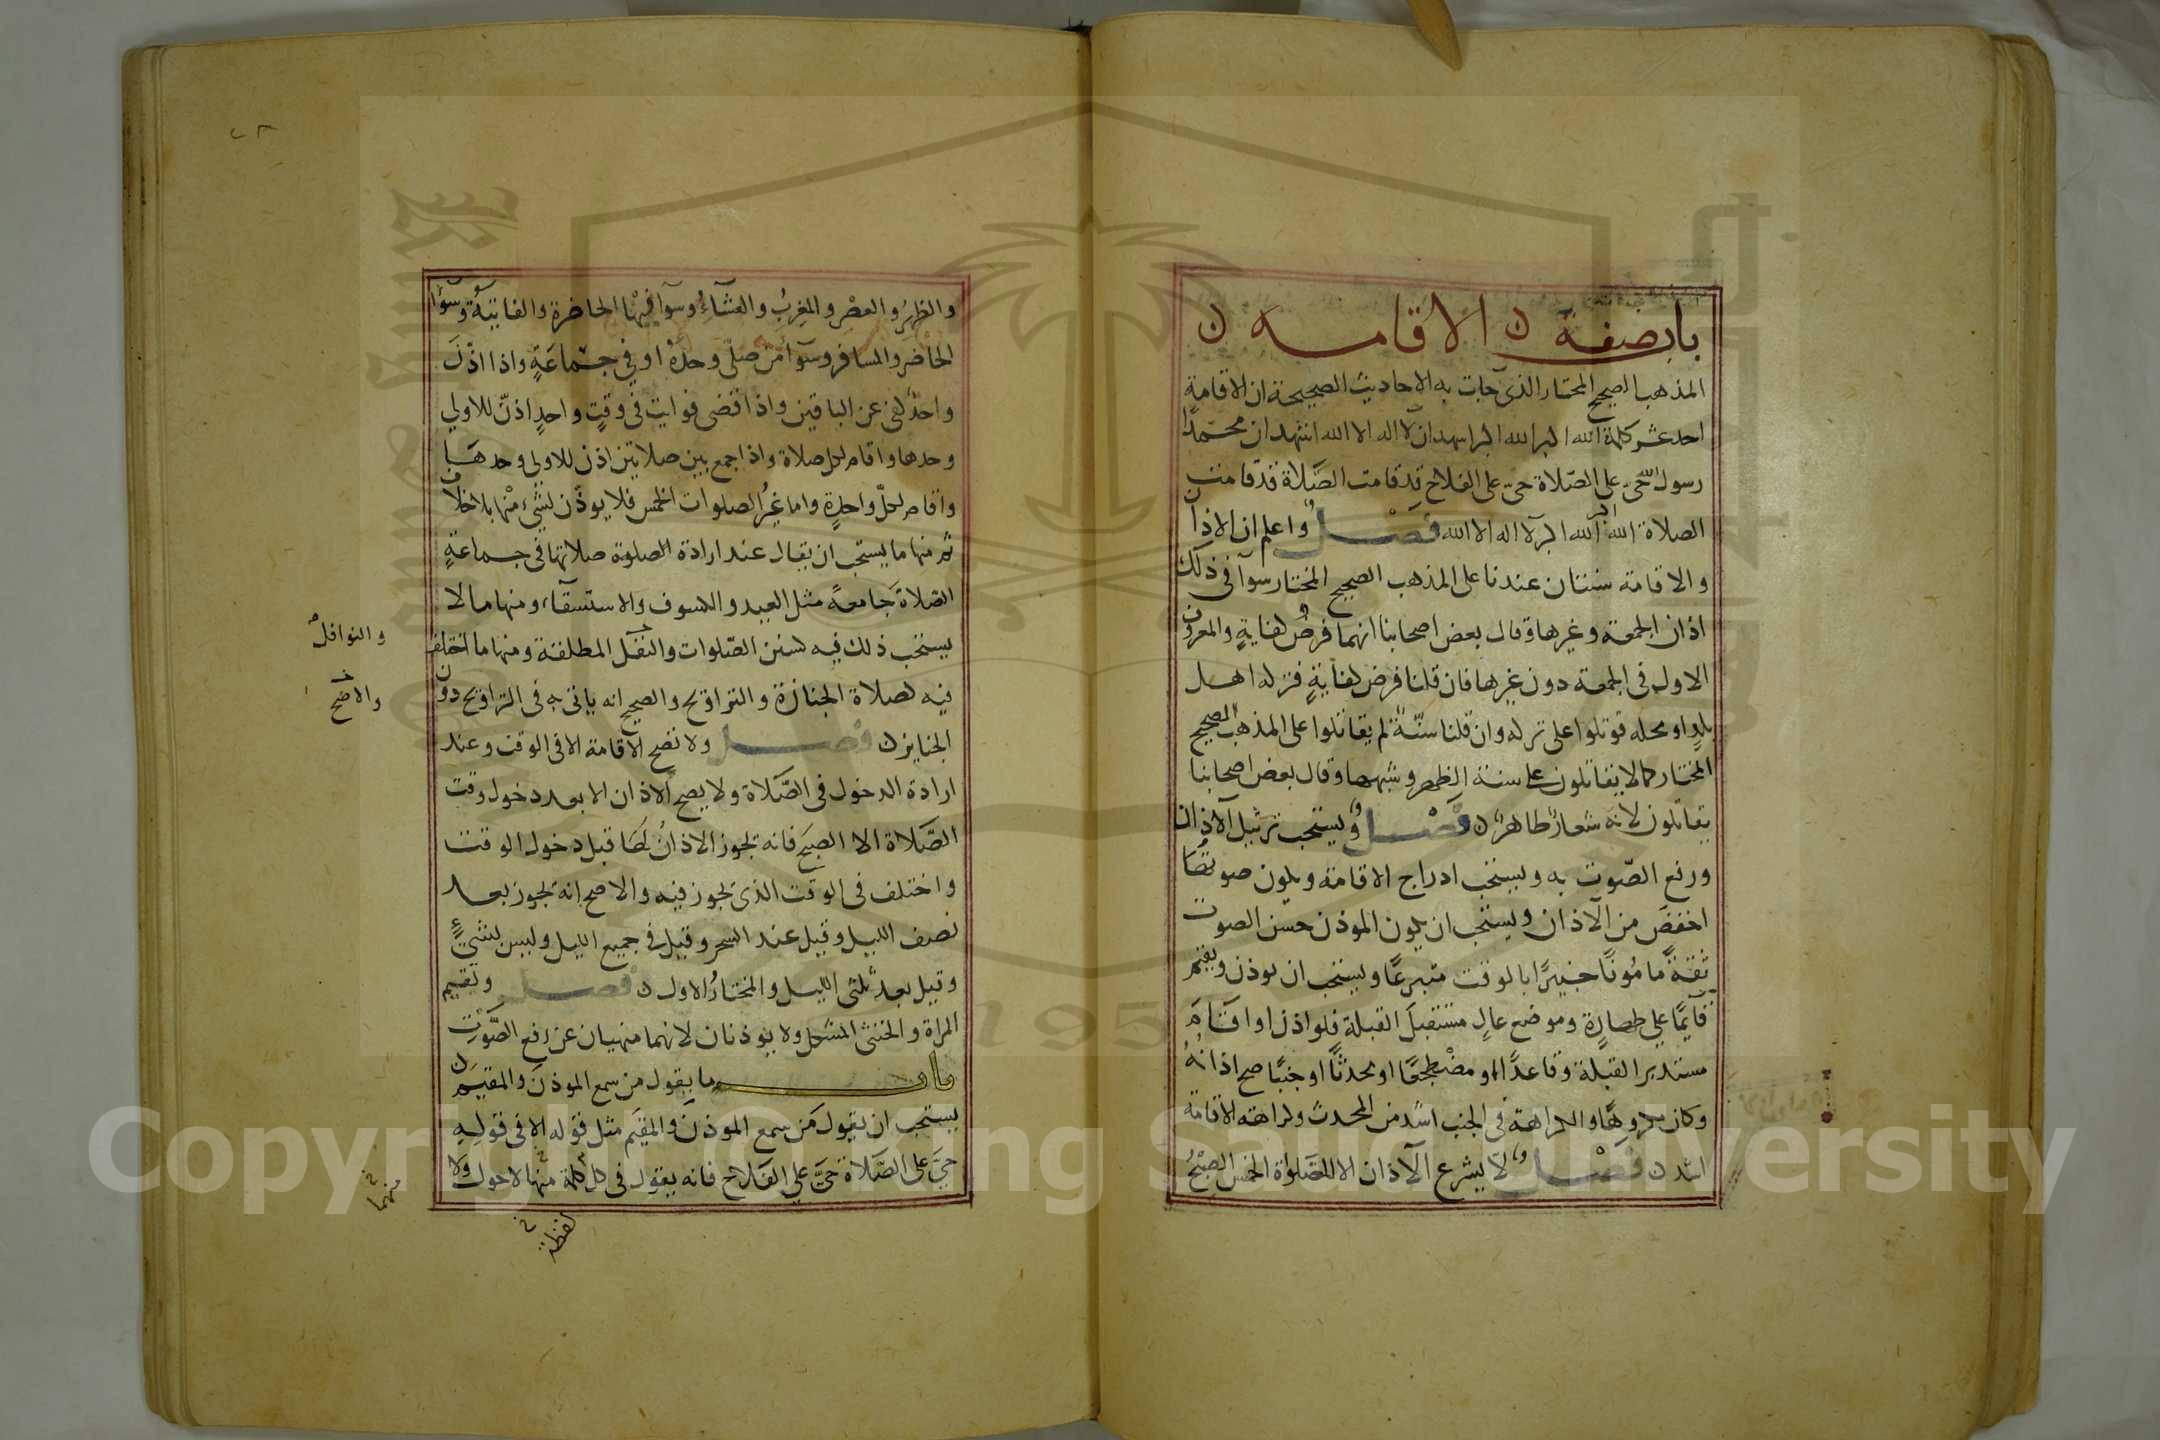 باب صفة الاقامه
المذهب الصحيح المختار الذي جات به الاحاديث الصحيحة ان الاقامة
احد عشر كلمة الله اكبر الله اكبر اشهد ان لا اله الا الله اشهد ان محمّدًا
رسول الله حيّ على الصّلاة حيّ على الفلاح قد قامت الصّلاة قد قامت
الصلاة الله اكبر الله اكبر لا اله الا الله فصل واعلم ان الاذان
والاقامة سنتان عندنا على المذهب الصحيح المختار سوآ في ذلك
اذان الجمعة وغيرها وقال بعض اصحابنا انهما فرضُ كفايةٍ والمعروف
الاول في الجمعة دون غيرها فان قلنا فرض كفايةٍ فتركه اهل
بلدٍ او محله قوتلوا على تركه وان قلنا سنّةٌ لم يقاتلوا على المذهب الصحيح
المختار كما لا يقاتلون على سنة الظهر وشبهها وقال بعض اصحابنا
يقاتلون لانه شعارٌ ظاهرٌ فصل ويستحب ترتيل الآذان
ورفع الصّوت به ويستحب ادراج الاقامة ويكون صوتها
اخفضَ من الآذان ويستحب ان يكون الموذن حسن الصوت
ثقةً مامُونًا خبيرًا بالوقت متبرعًا ويستحب ان يوذن ويقيم
قآيمًا على طهارةٍ وموضع عالٍ مستقبلَ القبلة فلو اذن او اقامَ
مستدبر القبلة وقاعدًا او مضْطجعًا او محدثًا او جنبًا صح اذانُهُ
وكان مكروهًا والكراهة في الجنب اشد من المحدث وكراهة الاقامة
اشد فصل لا يشرع الآذان الا للصّلواة الخمس الصبْحُ
٢٨
والظهرُ والعصْر والمغربُ والعشآءُ وسوآ فيها الحاضرة والفايتةُ وسوآ
الحاضر والمسافر وسوآ من صلّى وحدهُ او في جماعةٍ واذا اذّنَ
واحدٌ كفى عن الباقين واذا قضى فوايت في وقتٍ واحدٍ اذنّ للاولي
وحدها واقام لكل صلاة واذا جمع بين صلاتين اذن للاولى وحدها
واقام لكلّ واحدةٍ واما غيرُ الصلوات الخمس فلا يوذّن لشيء منْها بلا خلاف
ثم منها ما يستحب ان يقال عند ارادة الصلوة صلاتها في جماعةٍ
الصّلاةَ جامعةً مثل العيد والكسوف والاستسقآء ومنها ما لا
يستحب ذلك فيه كسنن الصّلوات والنفل المطلقة ومنها ما اختلف
فيه كصلاة الجنازة والتراويح والصحيح انه ياتي به في التراويح دون
الجنايز فصل ولا تصح الاقامة الا في الوقت وعند
ارادة الدخول في الصّلاة ولا يصح الاذان الا بعد دخول وقت
الصّلاة الا الصبح فانه يجوز الاذانُ لها قبل دخول الوقت
واختلف في الوقت الذي يجوز فيه والاصح انه يجوز بعد
نصف الليل وقيل عند السحر وقيل في جميع الليل وليس بشيءٍ
وقيل بعد ثلثى الليل والمختارُ الاول فصل وتقيم
المراة والخنثى المشكل ولا يوذنان لانهما منهيان عن رفع الصّوتِ
باب ما يقول من سمع الموذنَ والمقيمَ
يستحب ان يقول مَن سمع الموذنَ والمقيَم مثل قوله الا في قولِهِ
حيّ على الصّلاة حيّ علي الفلاح فانه يقول في كل كلمة منها لا حول ولا
والنوافل
والاصح
منهما
لفظة